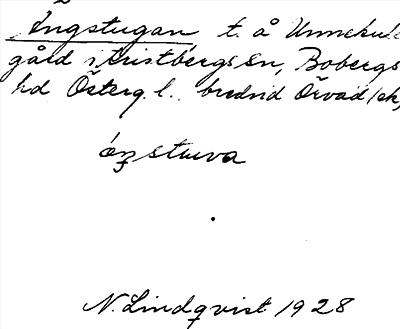 Ängstugan t. å Unnekulla
gård i Kristbergs sn, Bobergs
hd Österg. l. bredvid Örvad (ek)
éŋstuva
N. Lindqvist 1928